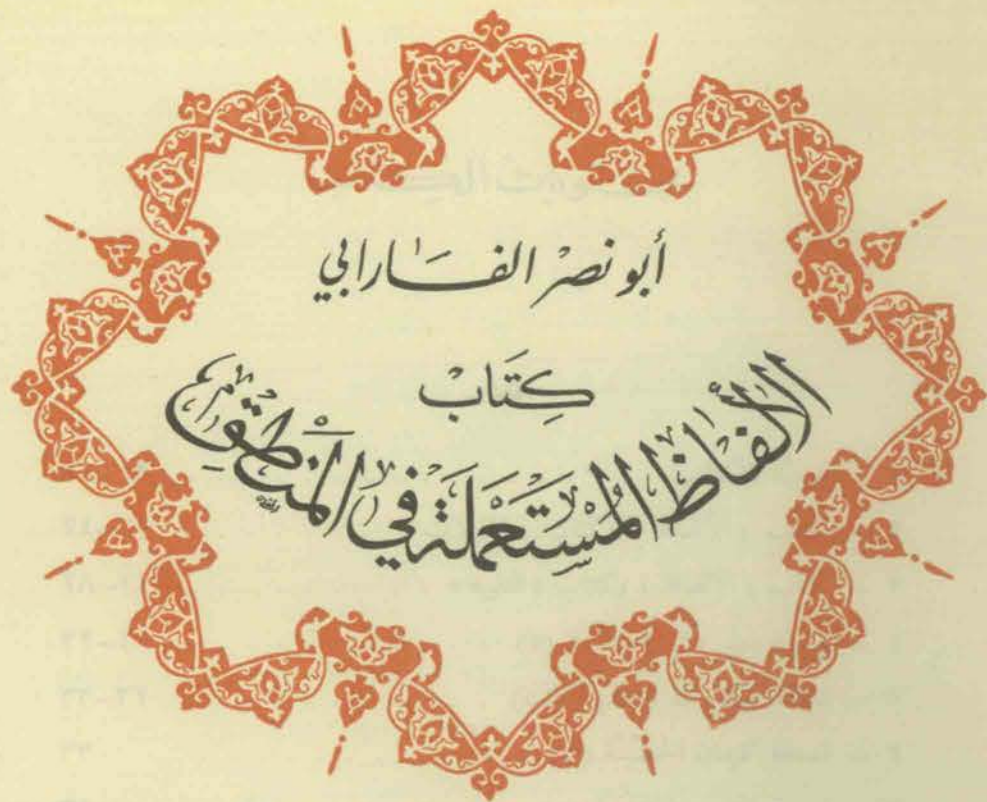 أبو نصر الفارابي
كِتَابْ
الألفاظ المُسْتَعْمَلَة في المنْطِق